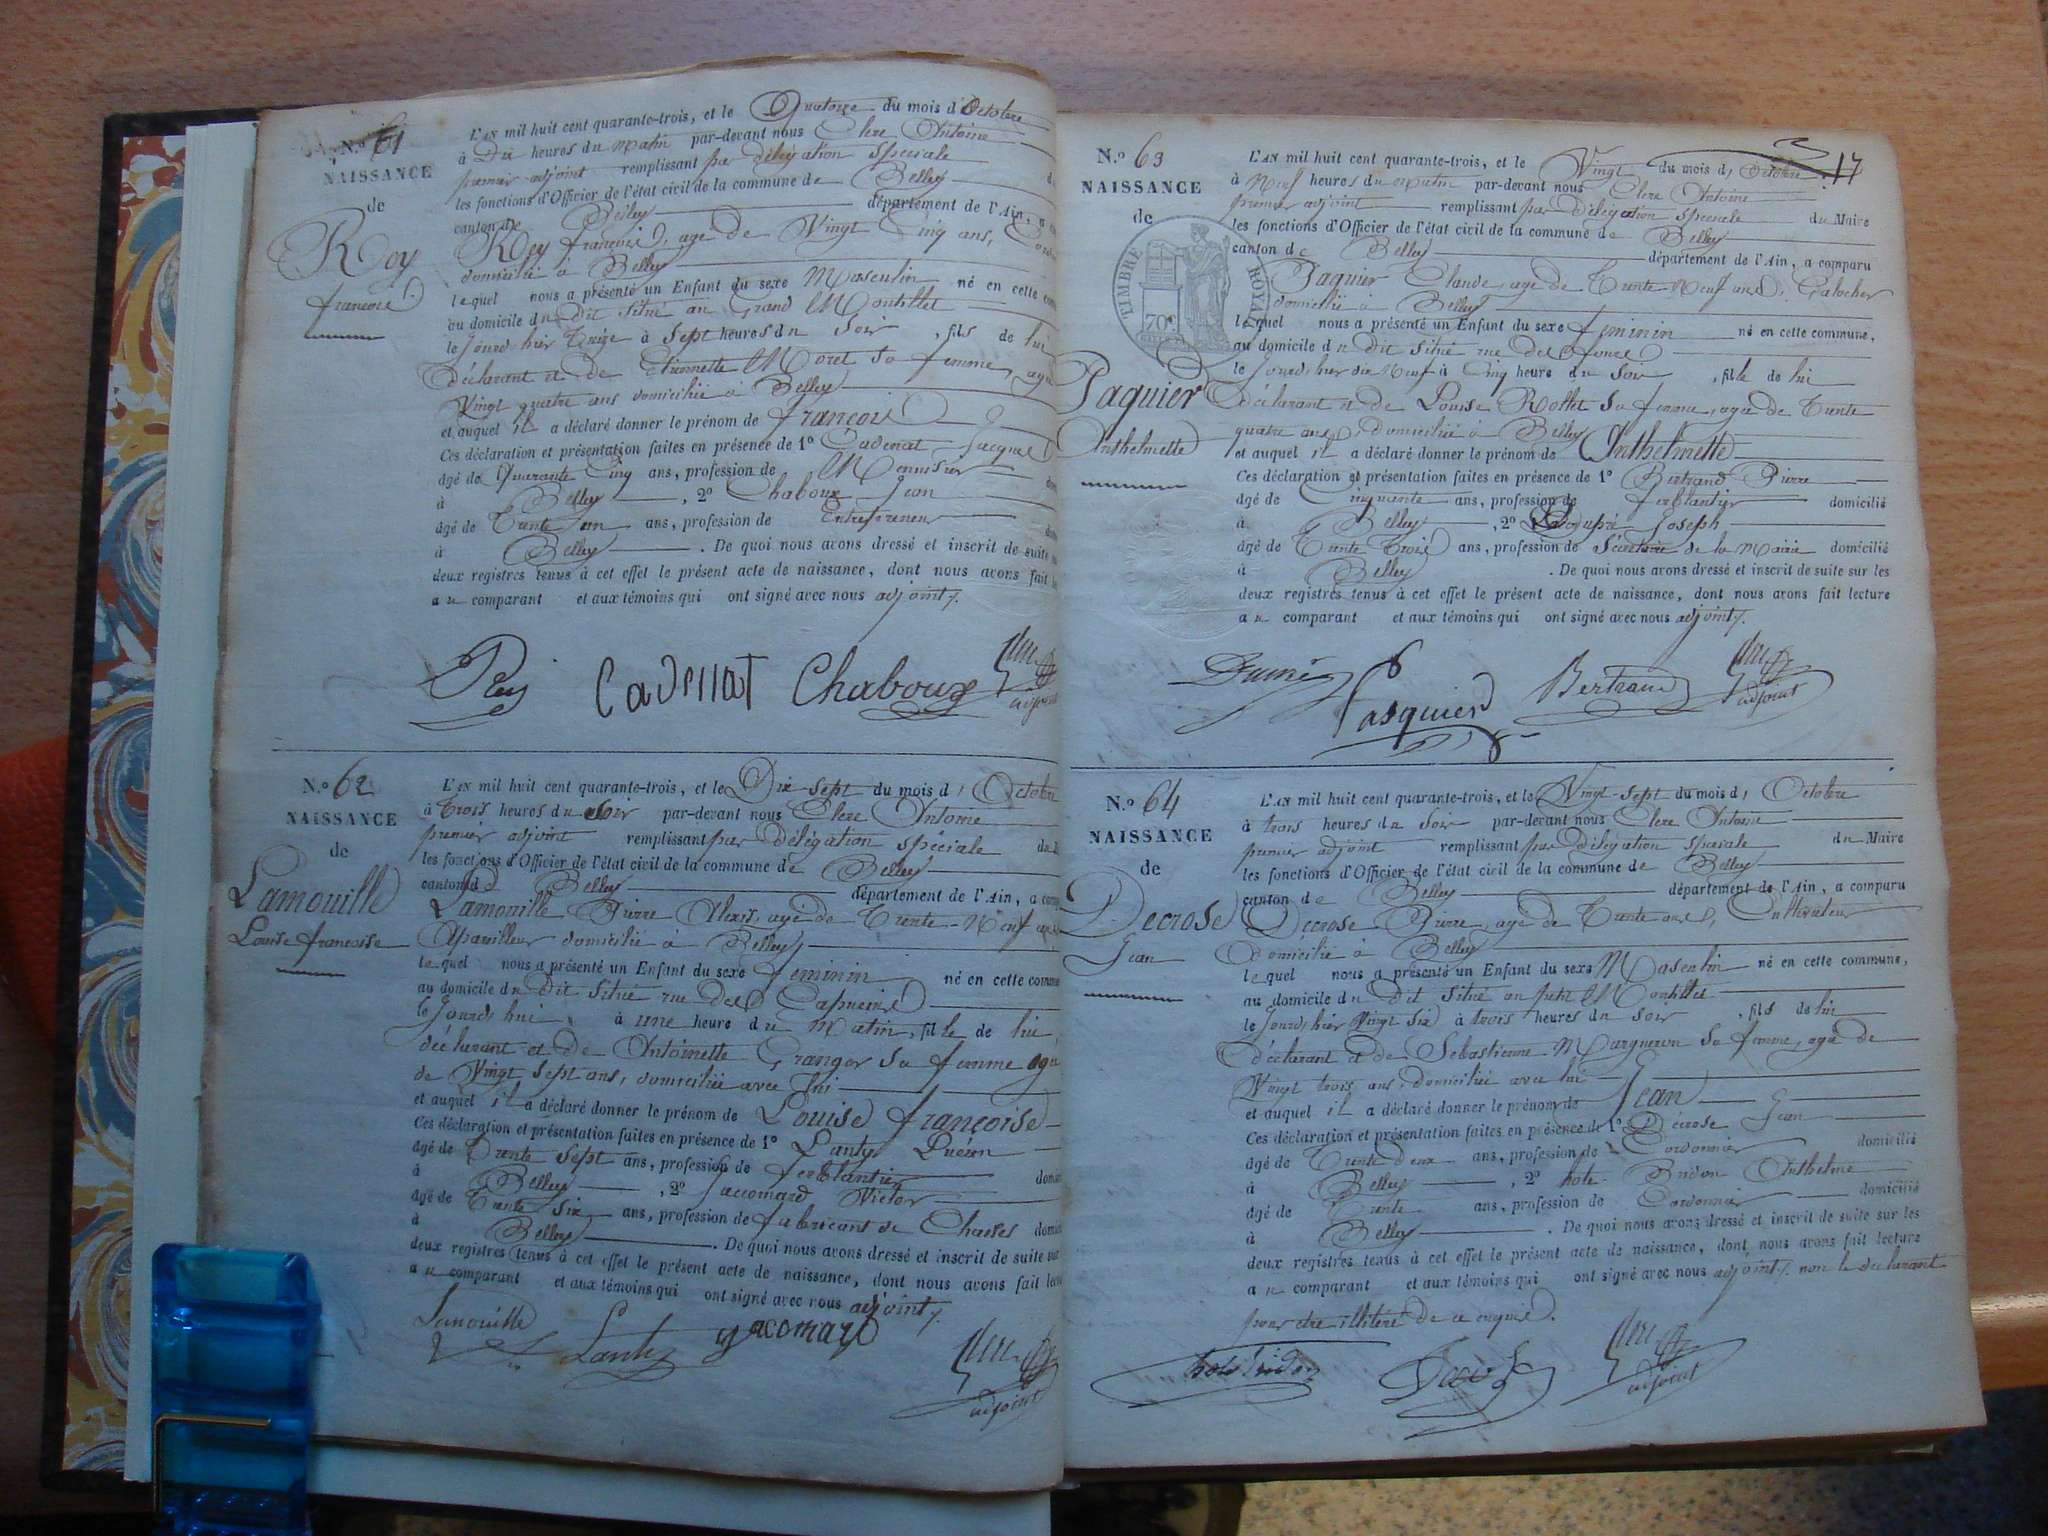 N.º 61
NAISSANCE
de
Rey
françois
L'AN mil huit cent quarante-trois, et le Quatorze du mois d'Octobre
à Dix heures du matin par-devant nous Clerc Antoine
premier adjoint remplissant par délégation spéciale
les fonctions d'Officier de l'état civil de la commune de Belley
canton de Belley département de l'Ain, a
Rey françois, agé de Vingt Cinq ans,
domicilié à Belley
lequel nous a présenté un Enfant du sexe Masculin né en cette
au domicile du Dit situé au Grand Montillet
le Jourd'hier Treize à Sept heures du Soir, fils de lui
déclarant et de Etiennette Moret sa femme, agée
Vingt quatre ans domiciliée à Belley
et auquel il a déclaré donner le prénom de françois
Ces déclaration et présentation faites en présence de 1º Cadenat Jacques
âgé de Quarante Cinq ans, profession de Menuisier
à Belley, 2º Chaboux Jean
âgé de Trente un ans, profession de Entrepreneur
à Belley. De quoi nous avons dressé et inscrit de suite
deux registres tenus à cet effet le présent acte de naissance, dont nous avons fait
au comparant et aux témoins qui ont signé avec nous adjoint.
Rey Cadenat Chaboux Clerc
adjoint
N.º 62
NAISSANCE
de
Lamouille
Louise françoise
L'AN mil huit cent quarante-trois, et le Dix-sept du mois d' Octobre
à trois heures du soir par-devant nous Clerc Antoine
premier adjoint remplissant par délégation spéciale du
les fonctions d'Officier de l'état civil de la commune de Belley
canton de Belley département de l'Ain, a
Lamouille Pierre Alexis, agé de Trente Neuf ans
Apareilleur domicilié à Belley
lequel nous a présenté un Enfant du sexe feminin né en cette
au domicile du Dit situé rue des Capucins
le Jourd'hui à une heure du Matin, fille de lui,
déclarant et de Antoinette Granger sa femme agée
de Vingt sept ans, domiciliée avec lui
et auquel il a déclaré donner le prénom de Louise françoise
Ces déclaration et présentation faites en présence de 1º Lanty
âgé de Trente sept ans, profession de ferblantier
à Belley, 2º Jaccomard Victor
âgé de Trente six ans, profession de fabricant de Chaises
à Belley. De quoi nous avons dressé et inscrit de suite sur
deux registres tenus à cet effet le présent acte de naissance, dont nous avons fait
au comparant et aux témoins qui ont signé avec nous adjoint.
Lamouille Lanty Jacomard Clerc
adjoint
17
N.º 63
NAISSANCE
de
TIMBRE ROYAL
70c
Paquier
Anthelmette
L'AN mil huit cent quarante-trois, et le Vingt du mois d' Octobre
à Neuf heures du matin par-devant nous Clerc Antoine
premier adjoint remplissant par délégation spéciale du Maire
les fonctions d'Officier de l'état civil de la commune de Belley
canton de Belley département de l'Ain, a comparu
Paquier Claude, agé de Trente Neuf ans, Galocher
domicilié à Belley
lequel nous a présenté un Enfant du sexe feminin né en cette commune,
au domicile du Dit situé rue des
le Jourd'hier dix Neuf à Cinq heure du Soir, fille de lui
déclarant et de Louise Rollet sa femme, agée de Trente
quatre ans, domiciliée à Belley
et auquel il a déclaré donner le prénom de Anthelmette
Ces déclaration et présentation faites en présence de 1º Bertrand Pierre
âgé de Cinquante ans, profession de ferblantier domicilié
à Belley, 2º Joseph
âgé de Trente Trois ans, profession de Sécretaire de la Mairie domicilié
à Belley. De quoi nous avons dressé et inscrit de suite sur les
deux registres tenus à cet effet le présent acte de naissance, dont nous avons fait lecture
au comparant et aux témoins qui ont signé avec nous adjoint.
Pasquier Bertrand Clerc
adjoint
N.º 64
NAISSANCE
de
Decrose
Jean
L'AN mil huit cent quarante-trois, et le Vingt-sept du mois d' Octobre
à trois heures du soir par-devant nous Clerc Antoine
premier adjoint remplissant par délégation spéciale du Maire
les fonctions d'Officier de l'état civil de la commune de Belley
canton de Belley département de l'Ain, a comparu
Decrose Pierre, agé de Trente ans, Cultivateur
domicilié à Belley
lequel nous a présenté un Enfant du sexe Masculin né en cette commune,
au domicile du Dit situé au petit Montillet
le Jourd'hier Vingt six à trois heures du soir, fils de lui
déclarant et de Sebastienne Margueron sa femme, agée de
Vingt trois ans, domiciliée avec lui
et auquel il a déclaré donner le prénom de Jean
Ces déclaration et présentation faites en présence de 1º Décrose Jean
âgé de Trente deux ans, profession de Cordonnier domicilié
à Belley, 2º hote Bridon Anthelme
âgé de Trente ans, profession de Cordonnier domicilié
à Belley. De quoi nous avons dressé et inscrit de suite sur les
deux registres tenus à cet effet le présent acte de naissance, dont nous avons fait lecture
au comparant et aux témoins qui ont signé avec nous adjoint. non le déclarant
pour être illitéré de ce enquis.
Clerc
adjoint